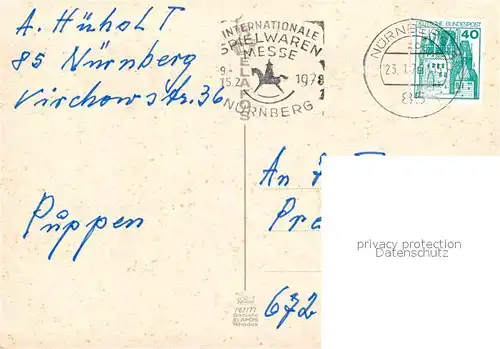 A. Hühol T
85 Nürnberg
Virchowstr. 36
Püppen
INTERNATIONALE
SPIELWAREN
MESSE
9.-
15.2. 1978
NÜRNBERG
NÜRNBERG
23.1.78
85
DEUTSCHE BUNDESPOST
40
An
672
privacy protection
Datenschutz